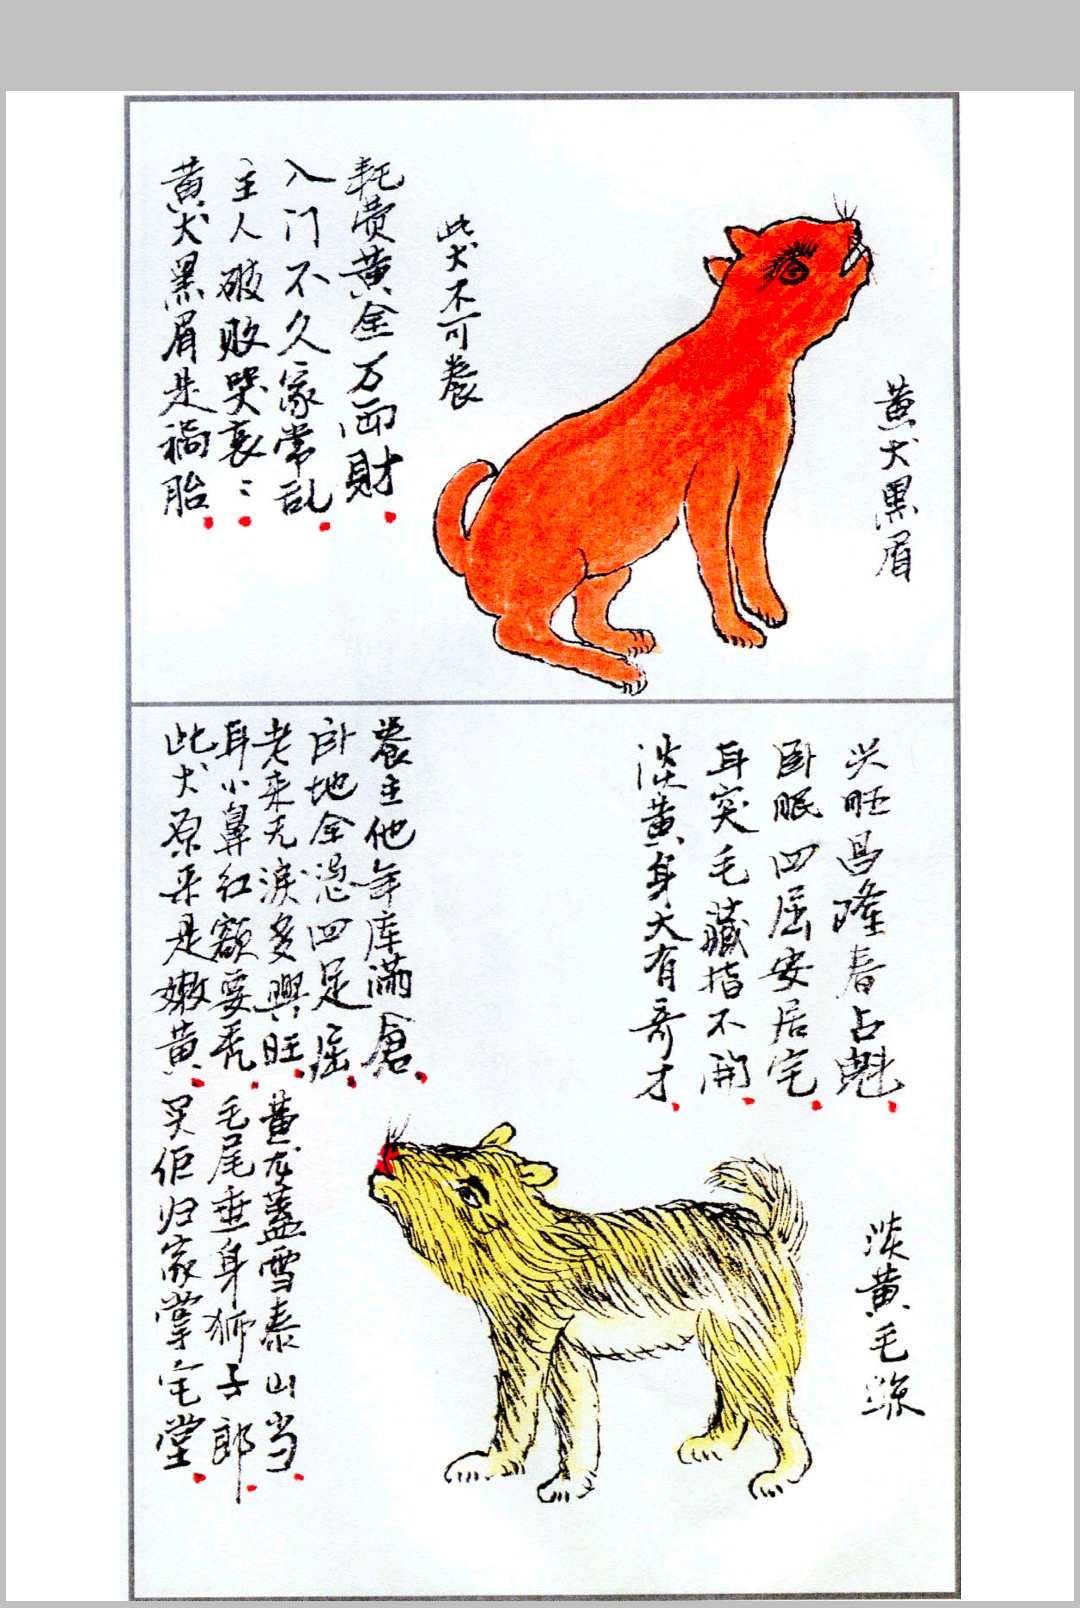 黄犬黑眉
此犬不可養
黄犬黑眉是祸胎
主人破败哭哀〻
入门不久家常乱
耗费黄金万両財
淡黄毛
淡黄身大有奇才
耳突毛藏指不開
卧眠四屈安居宅
兴旺昌隆春占魁
此犬原来是嫩黄
耳小鼻红额要秃
老来无淚多興旺
卧地全憑四足屈
養主他年库满倉
归家掌宅堂
毛尾垂身狮子郎
黄龙蓋雪泰山当